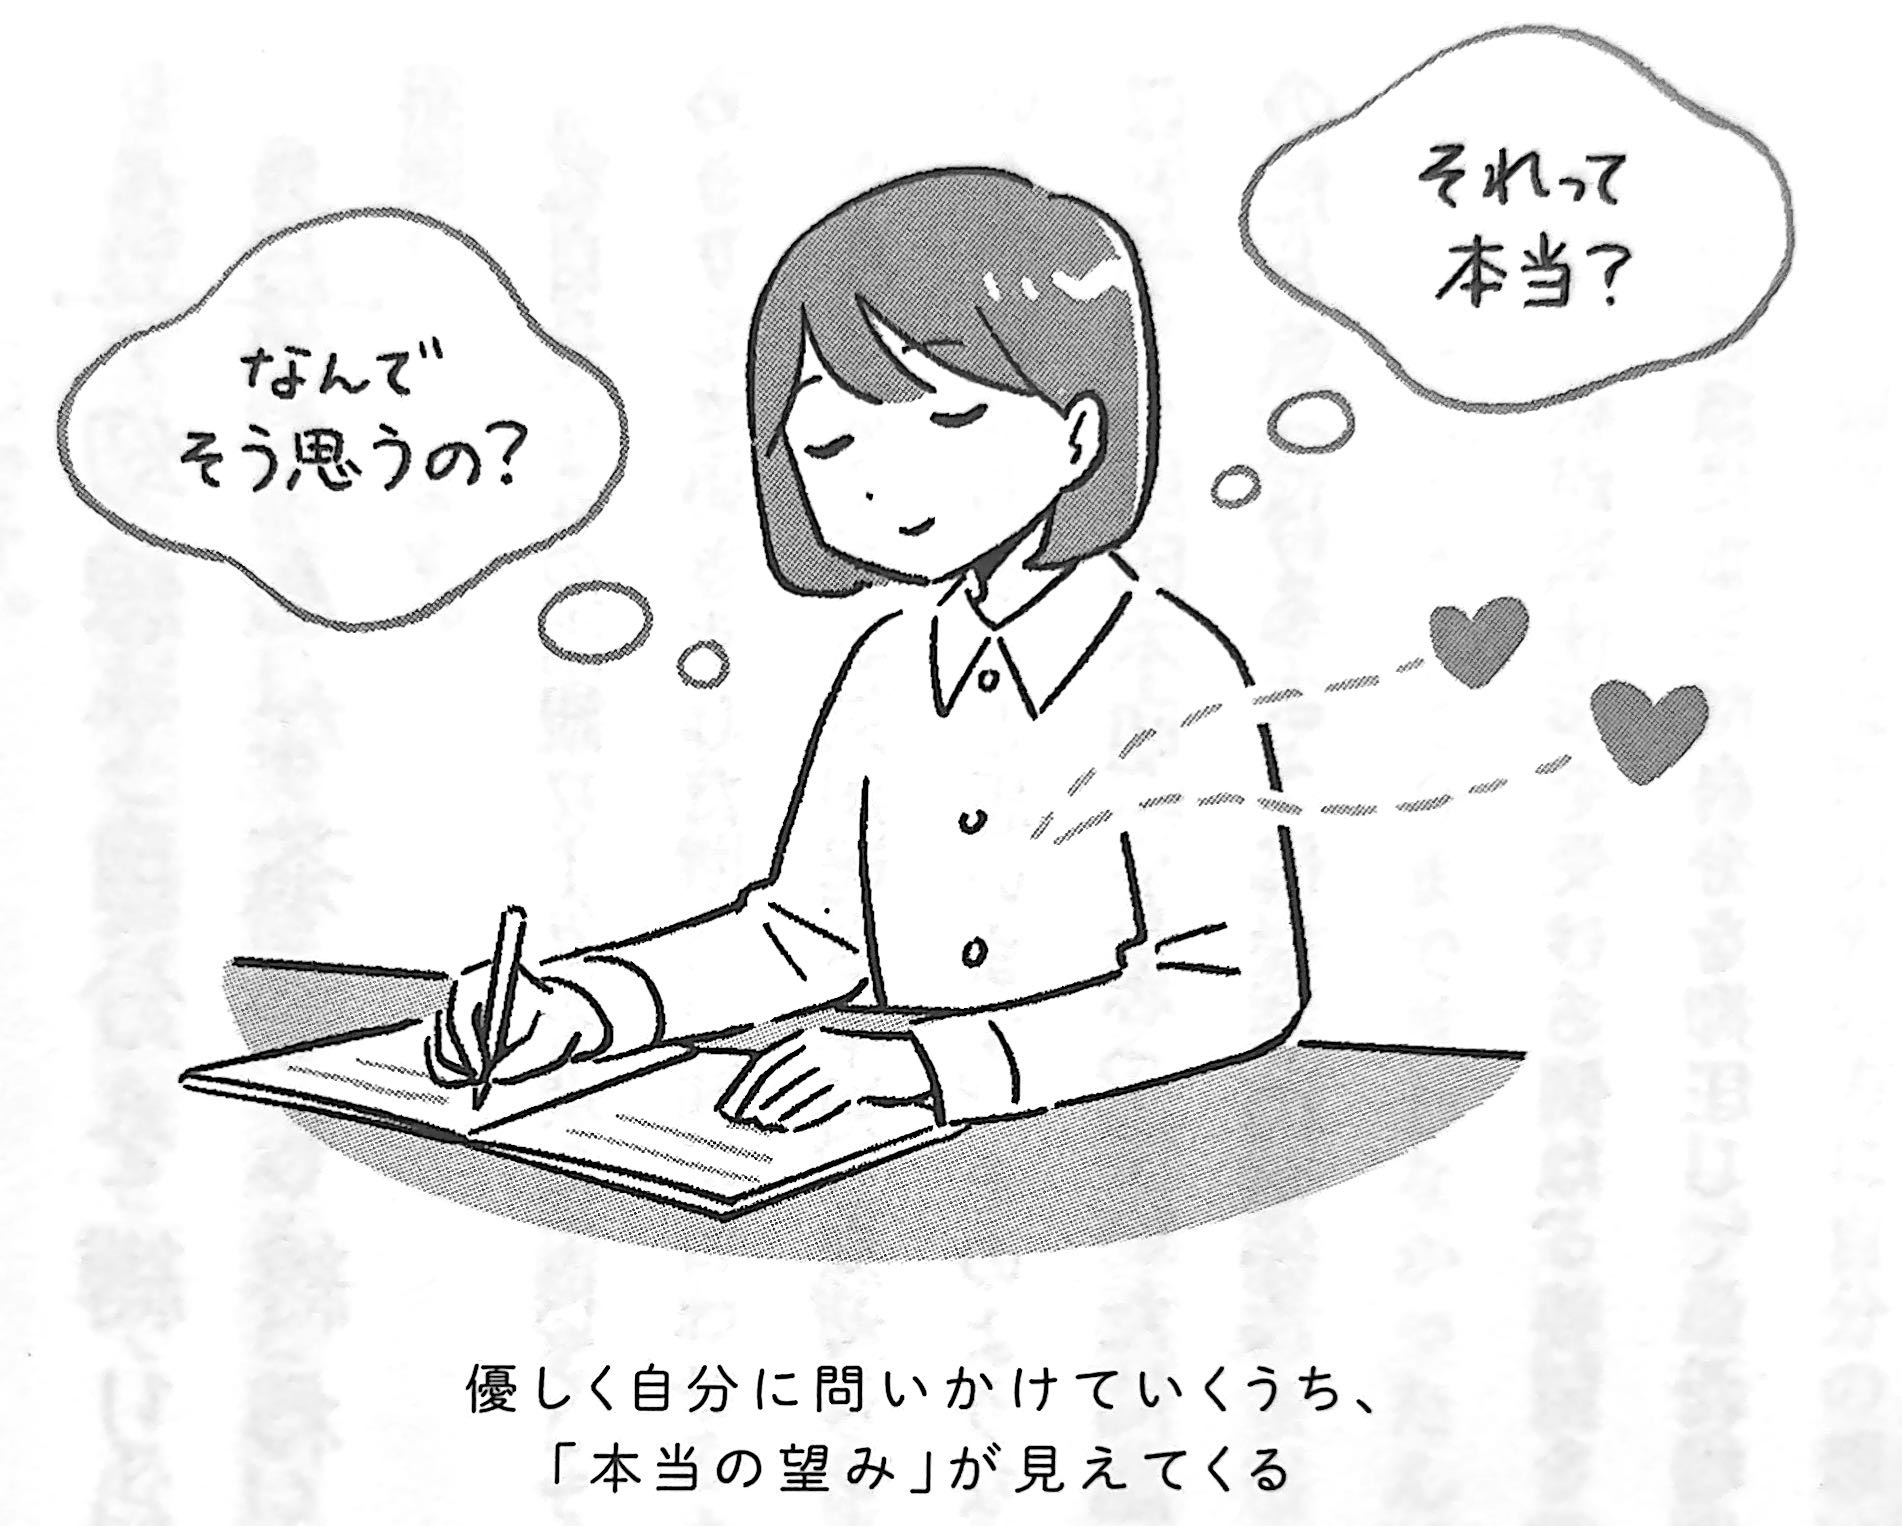 なんで
そう思うの?
それって
本当?
優しく自分に問いかけていくうち、
「本当の望み」が見えてくる